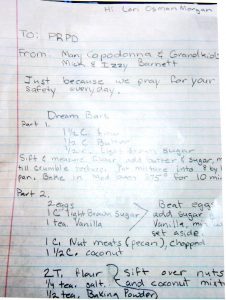 Hi Lori Osman Morgan
TO: PRPD
From: Mary Capodonna & Grandkids
Mick & Izzy Barnett
Just because we pray for your
safety everyday.
Dream Bars
Part 1.
1 1/2 C. flour
1/2 C. Butter
1/2 C. light brown sugar
Sift & measure flour, add butter & sugar, mix
till crumble forms. Pat mixture into 8 by
pan. Bake in Mod oven 375° for 10 min
Part 2.
2 eggs Beat eggs
1 C. light Brown Sugar add sugar &
1 tea. Vanilla Vanilla, mix
set aside
1 C. Nut meats (pecan), chopped
1 1/2 C. coconut
2 T. flour Sift over nuts
1/4 tea. salt. and coconut mix
1/2 tea. Baking Powder